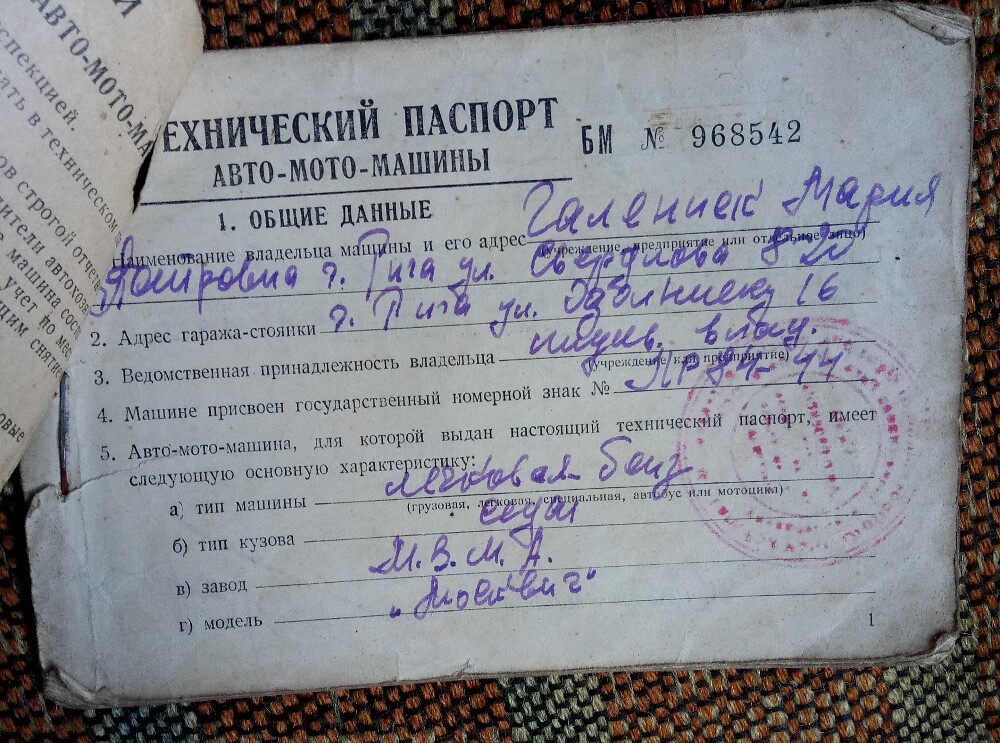 И
АВТО-МОТО-МА
спекцией.
ать в техническом
ов строгой отчет
дители автохозя
машина сос
учет по мес
щим снятие
овые
ЕХНИЧЕСКИЙ ПАСПОРТ
АВТО-МОТО-МАШИНЫ
БМ № 968542
1. ОБЩИЕ ДАННЫЕ
Наименование владельца машины и его адрес Галениек Мария
(учреждение, предприятие или отдельное лицо)
г. Рига ул. Свердлова 8 20
2. Адрес гаража-стоянки г. Рига ул. 16
3. Ведомственная принадлежность владельца влад.
(учреждение или предприятие)
4. Машине присвоен государственный номерной знак № 84-44
5. Авто-мото-машина, для которой выдан настоящий технический паспорт, имеет
следующую основную характеристику:
а) тип машины легковая
(грузовая, легковая, специальная, автобус или мотоцикл)
б) тип кузова седан
в) завод М.З.М.А.
г) модель „Москвич"
1